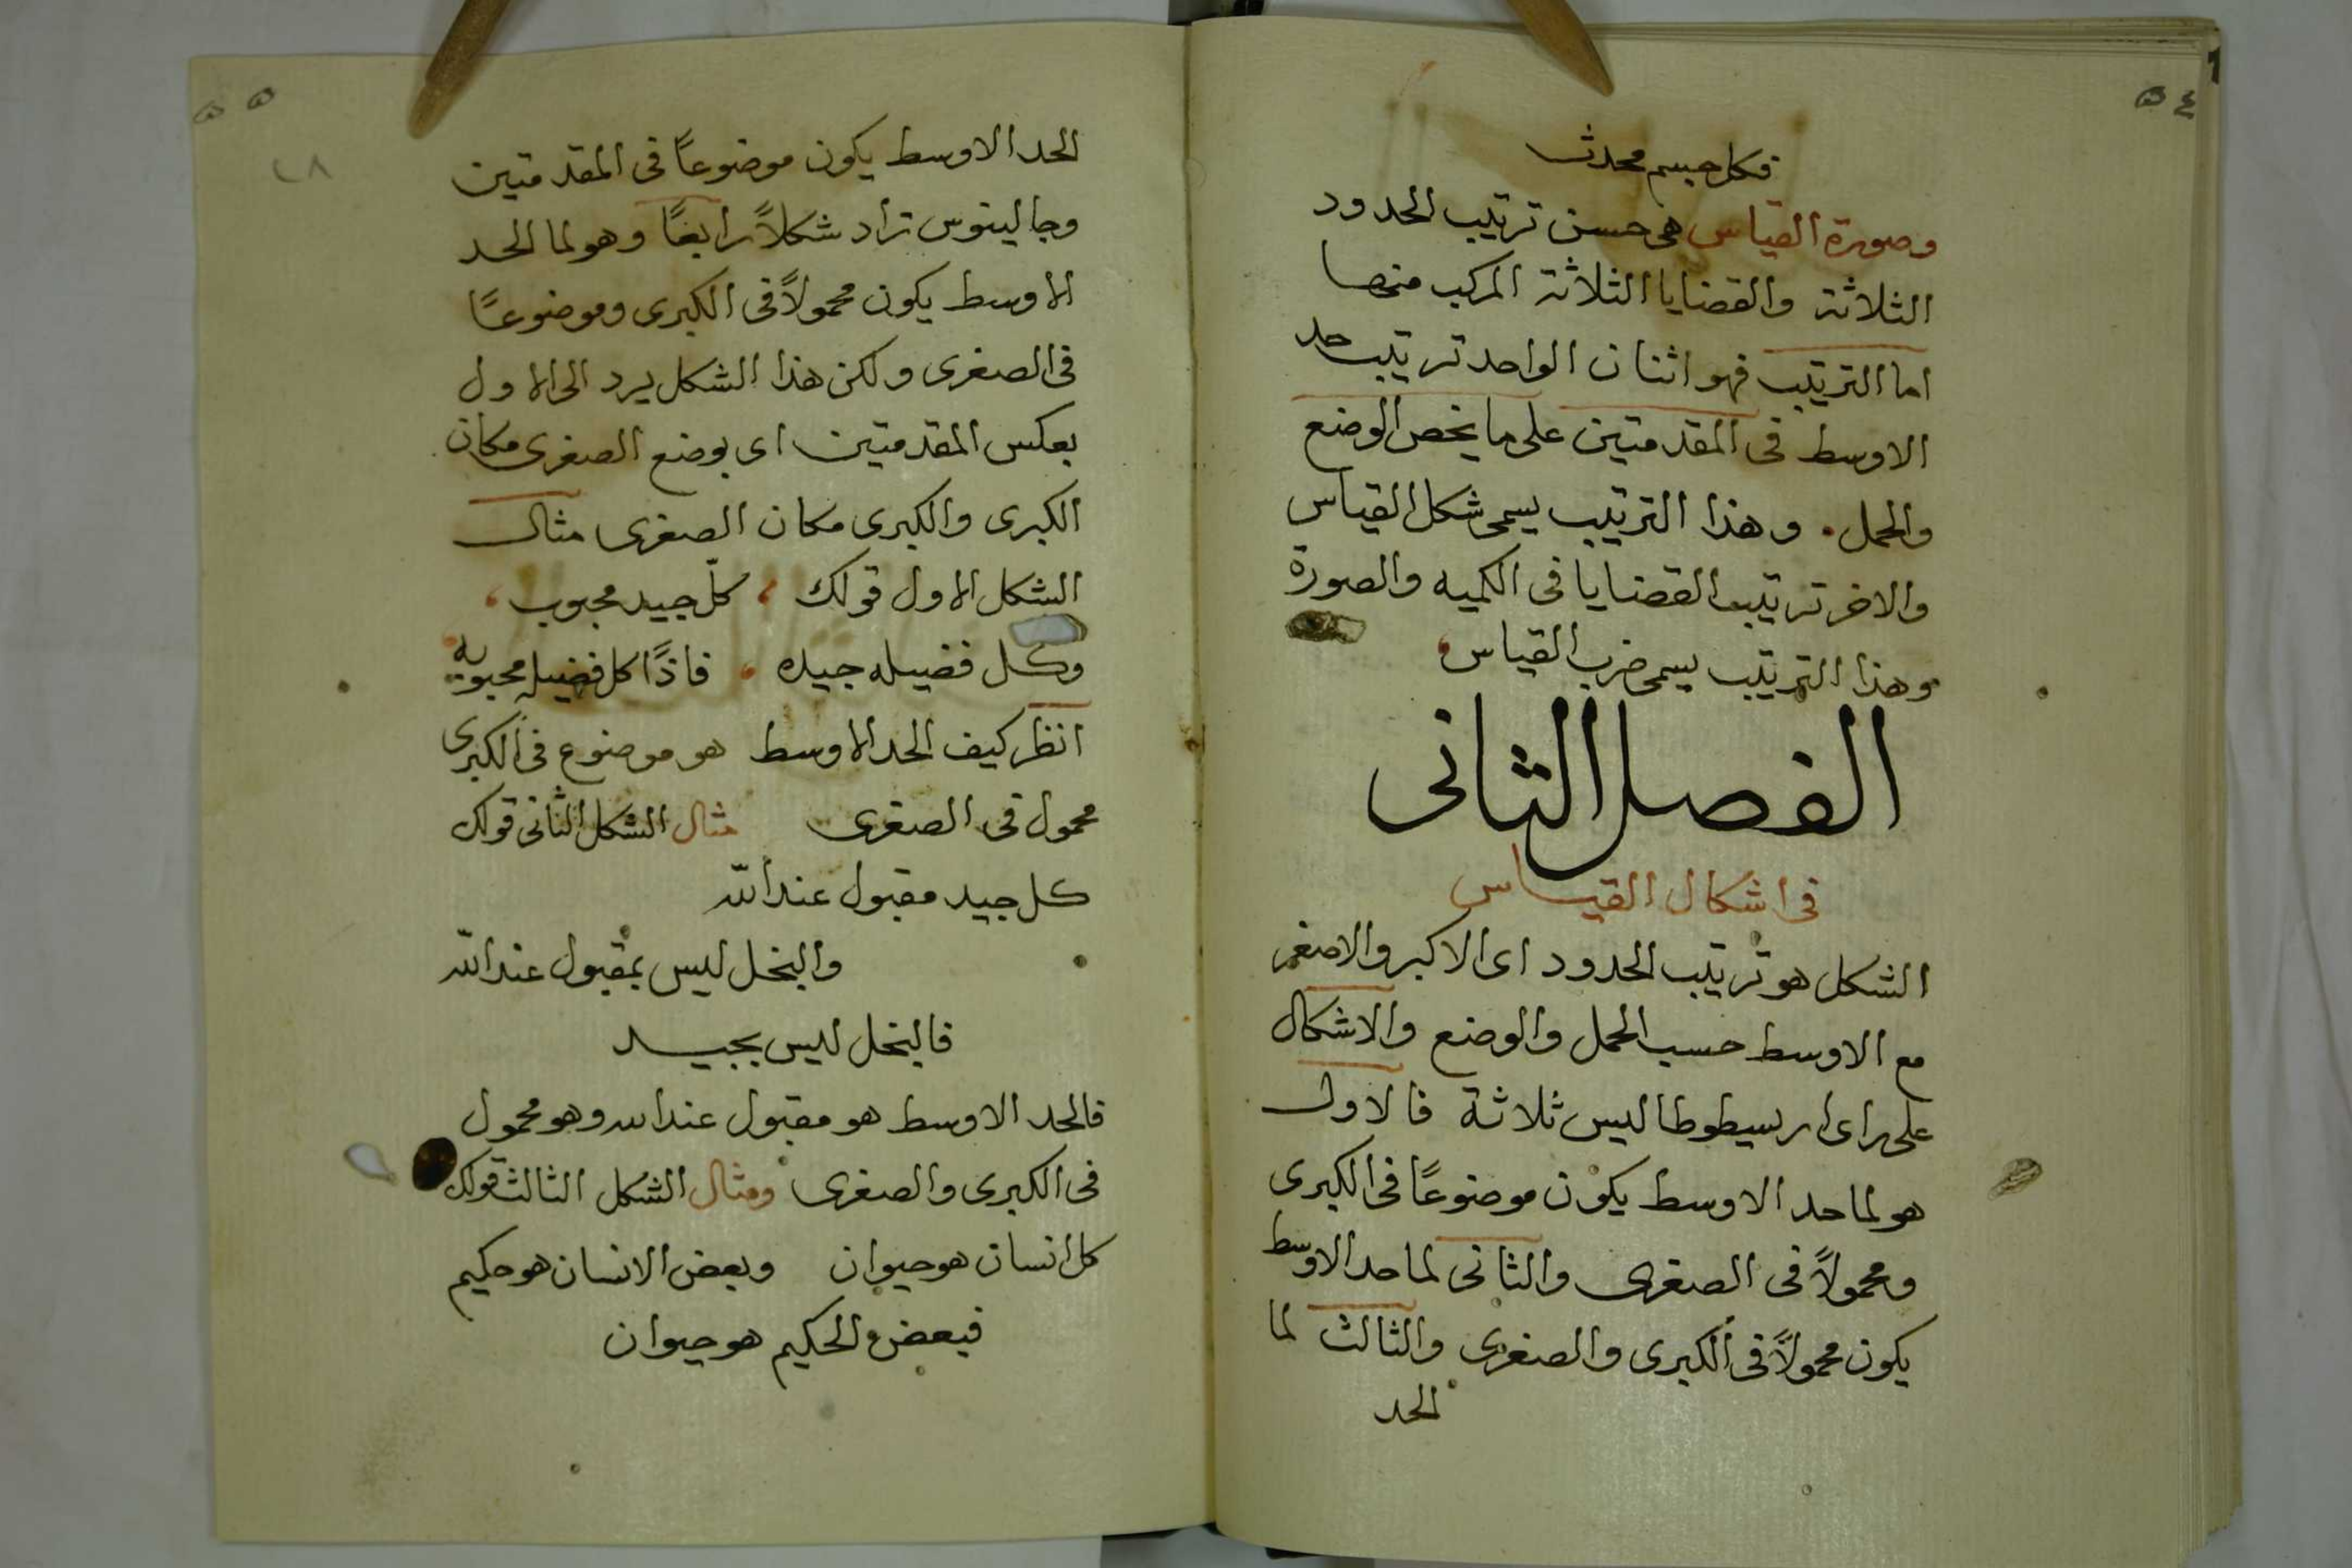 ٥٤
فكل جسم محدث
وصورة القياس هى حسن ترتيب الحدود
الثلاثة والقضايا الثلاثة المركب منها
اما الترتيب فهو اثنان الواحد ترتيب حد
الاوسط فى المقدمتين على ما يخص الوضع
والحمل . وهذا الترتيب يسمى شكل القياس
والاخر ترتيب القضايا فى الكميه والصورة
وهذا الترتيب يسمى ضرب القياس
الفصل الثانى
فى اشكال القياس
الشكل هو ترتيب الحدود اى الاكبر والاصغر
مع الاوسط حسب الحمل والوضع والاشكال
على راى ارسيطوطاليس ثلاثة فالاول
هو لما حد الاوسط يكون موضوعًا فى الكبرى
ومحمولاً فى الصغرى والثانى لما حد الاوسط
يكون محمولاً فى الكبرى والصغرى والثالث لما
الحد
٥٥
٤٨
الحد الاوسط يكون موضوعاً فى المقدمتين
وجالينوس زاد شكلاً رابعًا وهو لما الحد
الاوسط يكون محمولاً فى الكبرى وموضوعًا
فى الصغرى ولكن هذا الشكل يرد الى الاول
بعكس المقدمتين اى بوضع الصغرى مكان
الكبرى والكبرى مكان الصغرى مثال
الشكل الاول قولك ، كلّ جيد محبوب ،
وكل فضيله جيده ، فاذًا كل فضيله محبوبه
انظر كيف الحد الاوسط هو موضوع فى الكبرى
محمول فى الصغرى مثال الشكل الثانى قولك
كل جيد مقبول عند الله
والبخل ليس بمقبول عند الله
فالبخل ليس بجيد
فالحد الاوسط هو مقبول عند الله وهو محمول
فى الكبرى والصغرى ومثال الشكل الثالث قولك
كل انسان هو حيوان وبعض الانسان هو حكيم
فبعض الحكيم هو حيوان